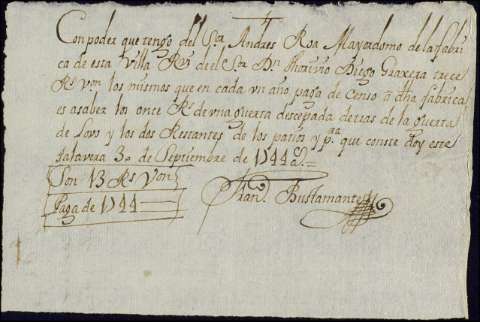 Con poder que tengo del Sor Andres Roa Mayordomo de la fabri
ca de esta Villa Rvi de el Sor Dn Diego treze
Rs Von los mismos que en cada un año paga de Censo â dha fabrica
es asaber los once Rs de una guerta descepada detras de la guerta
de y los dos Restantes de los y pa que conste doy este
talavera 30 de Septiembre de 1744 as
Son 13 Rs Von
Paga de 1744
Frand Bustamante